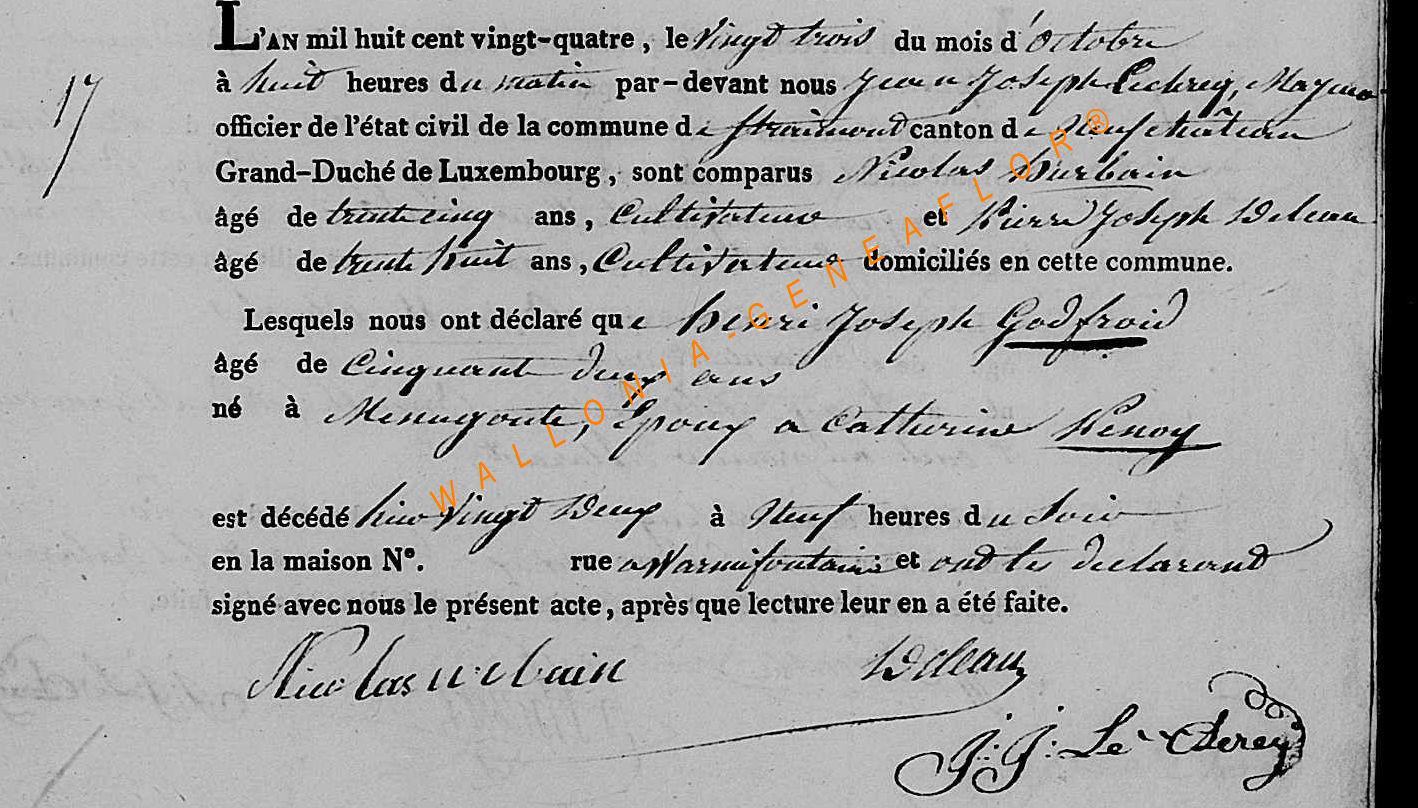 L'AN mil huit cent vingt-quatre, le Vingt trois du mois d'Octobre
17
à huit heures du matin par-devant nous Jean Joseph Leclerey, Mayeur
officier de l'état civil de la commune de Straimont canton de Neufchâteau
Grand-Duché de Luxembourg, sont comparus Nicolas Wurbain
âgé de trente cinq ans, Cultivateur et Pierre Joseph Deleau
âgé de trente huit ans, Cultivateur domiciliés en cette commune.
Lesquels nous ont déclaré que henri Joseph Godfroid
âgé de Cinquant deux ans
né à Menugoute, Epoux a Catherine
est décédé hier Vingt Deux à Neuf heures du Soir
en la maison N°. rue a Warmifontaine et ont les declarant
signé avec nous le présent acte, après que lecture leur en a été faite.
Nicolas urbain Deleau
J: J: Le Clerey
WALLONIA-GENEAFLOR®